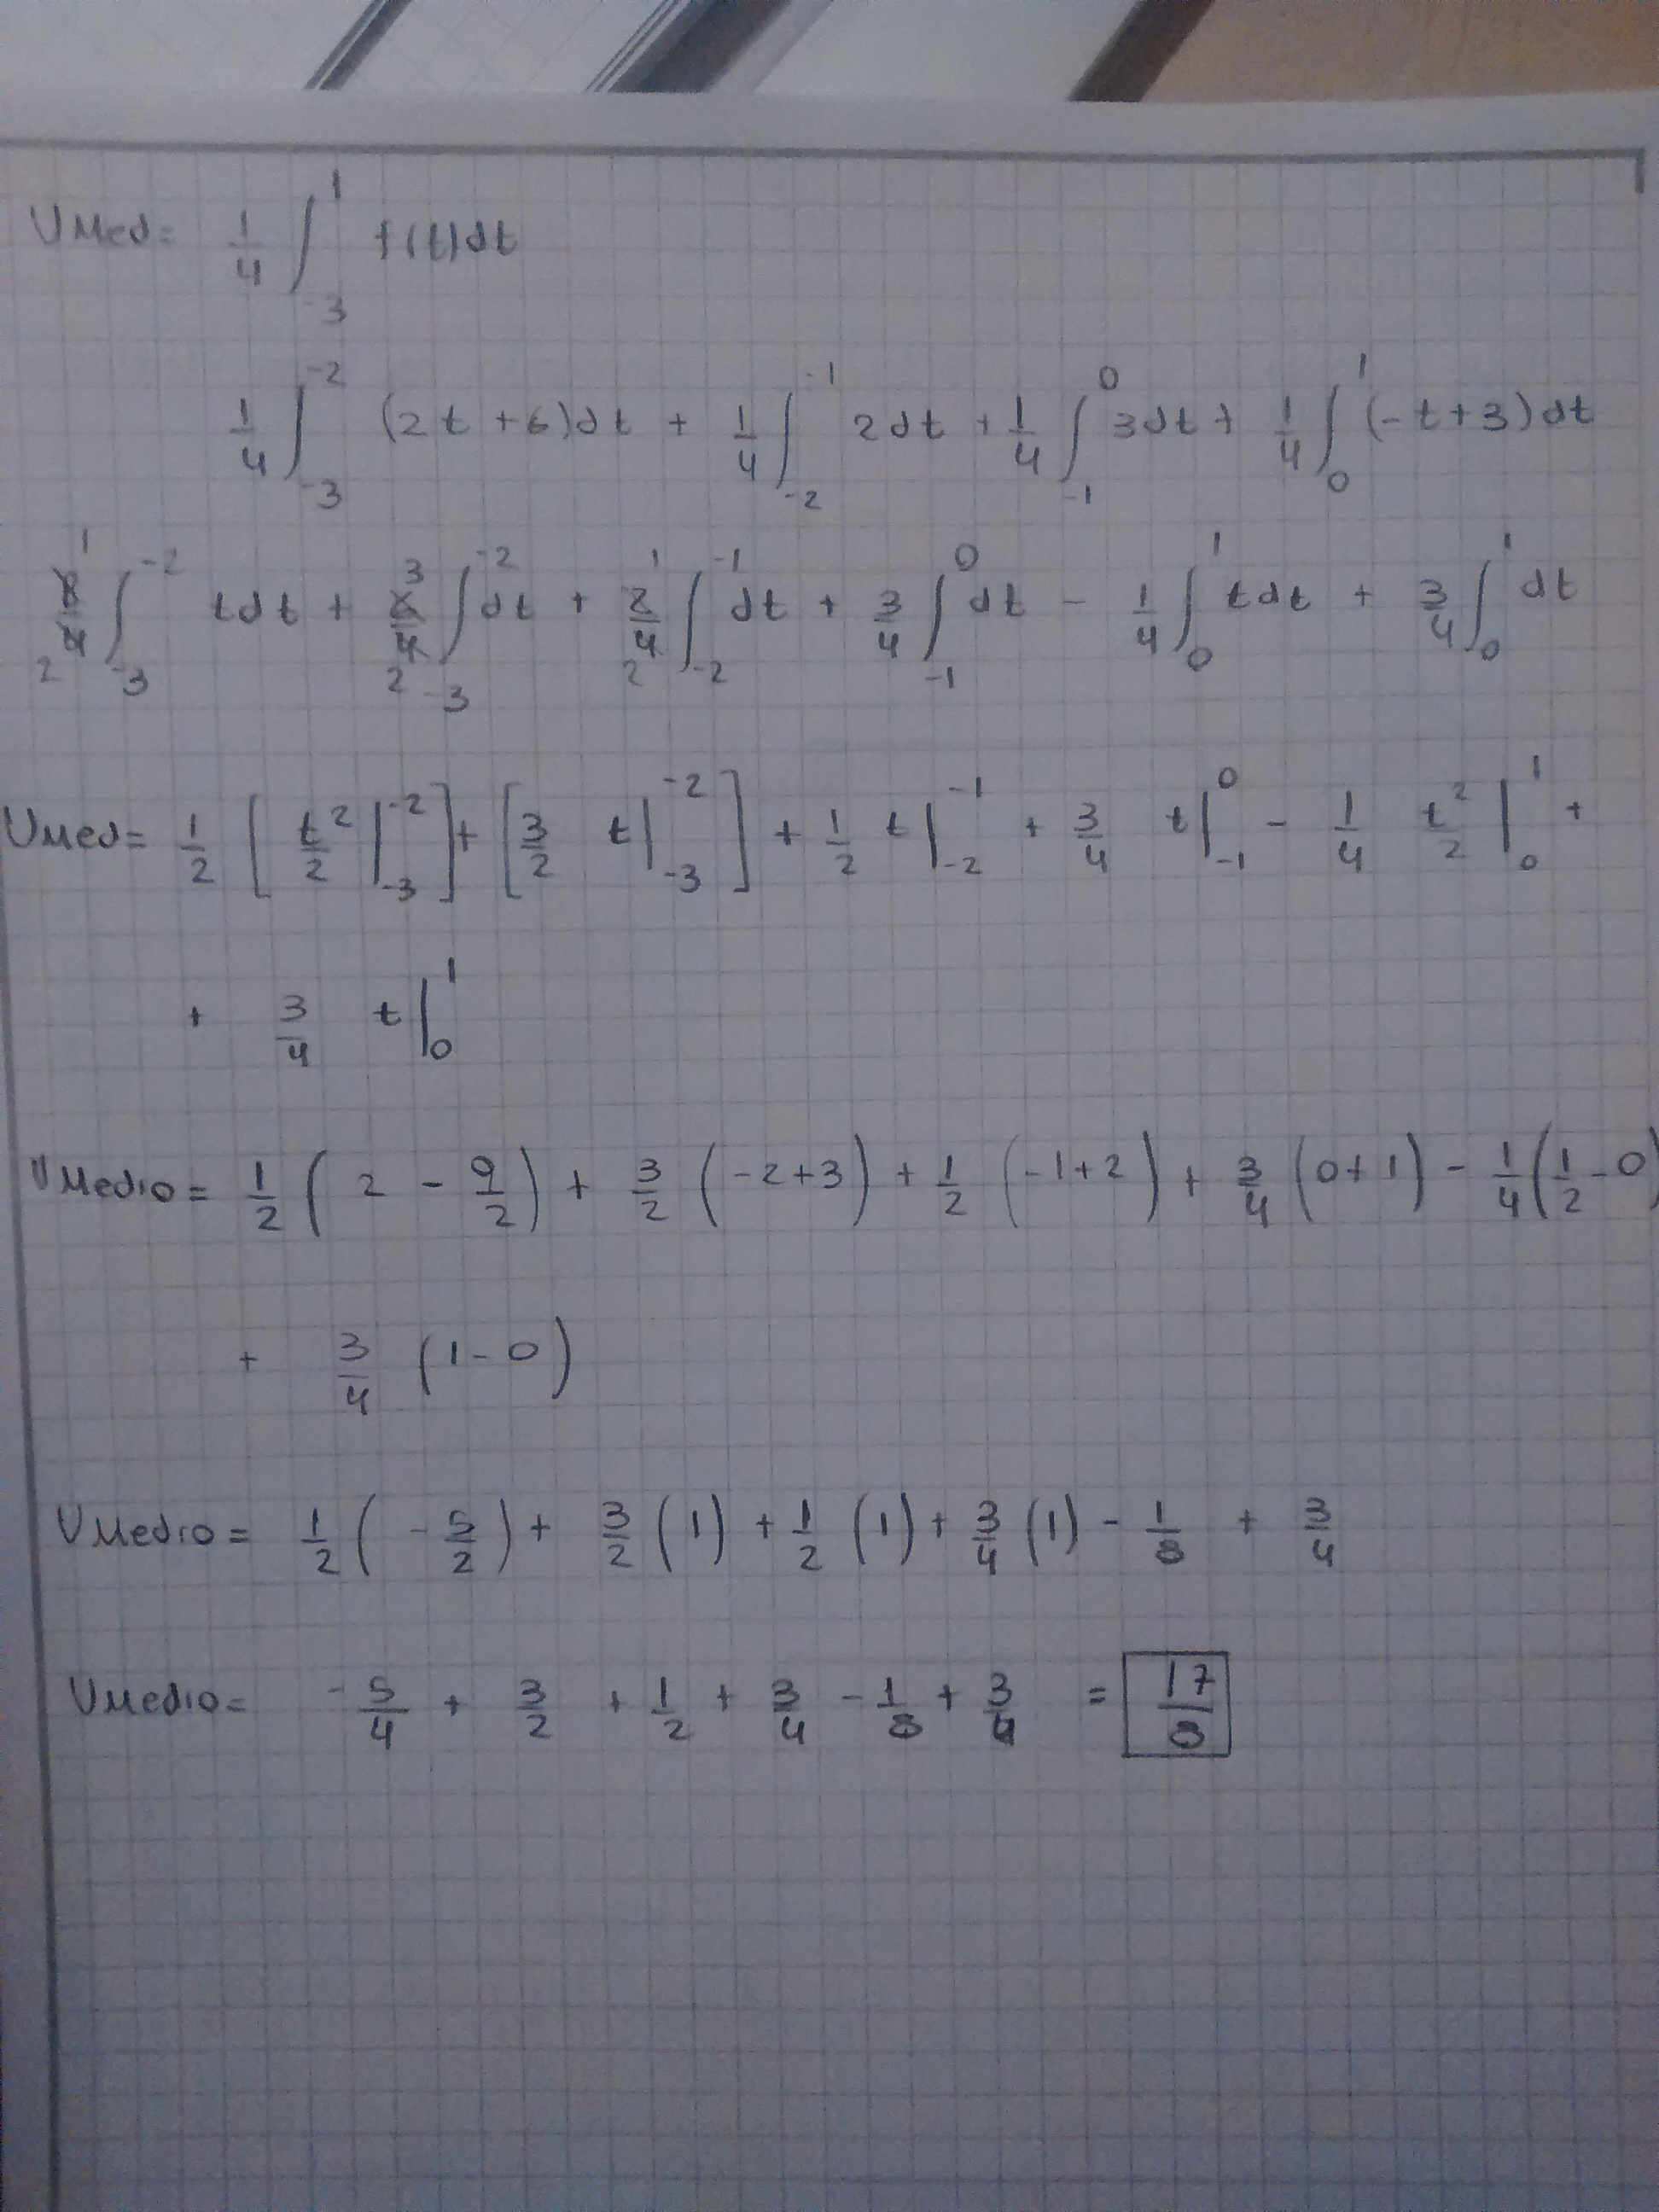 VMed= 1/4 ∫_{-3}^{1} f(t)dt
1/4 ∫_{-3}^{-2} (2t+6)dt + 1/4 ∫_{-2}^{-1} 2dt + 1/4 ∫_{-1}^{0} 3dt + 1/4 ∫_{0}^{1} (-t+3)dt
1 -2 3 -2 1 -1 0 1 1
2/4 ∫ tdt + 6/4 ∫ dt + 2/4 ∫ dt + 3/4 ∫ dt - 1/4 ∫ tdt + 3/4 ∫ dt
2 -3 2 -3 2 -2 -1 0 0
VMed= 1/2 [ t²/2 |_{-3}^{-2} ] + [ 3/2 t |_{-3}^{-2} ] + 1/2 t |_{-2}^{-1} + 3/4 t |_{-1}^{0} - 1/4 t²/2 |_{0}^{1} +
+ 3/4 t |_{0}^{1}
VMedio= 1/2 ( 2 - 9/2 ) + 3/2 ( -2+3 ) + 1/2 ( -1+2 ) + 3/4 ( 0+1 ) - 1/4 ( 1/2 - 0 )
+ 3/4 ( 1-0 )
VMedio= 1/2 ( -5/2 ) + 3/2 ( 1 ) + 1/2 ( 1 ) + 3/4 ( 1 ) - 1/8 + 3/4
VMedio= -5/4 + 3/2 + 1/2 + 3/4 - 1/8 + 3/4 = 17/8